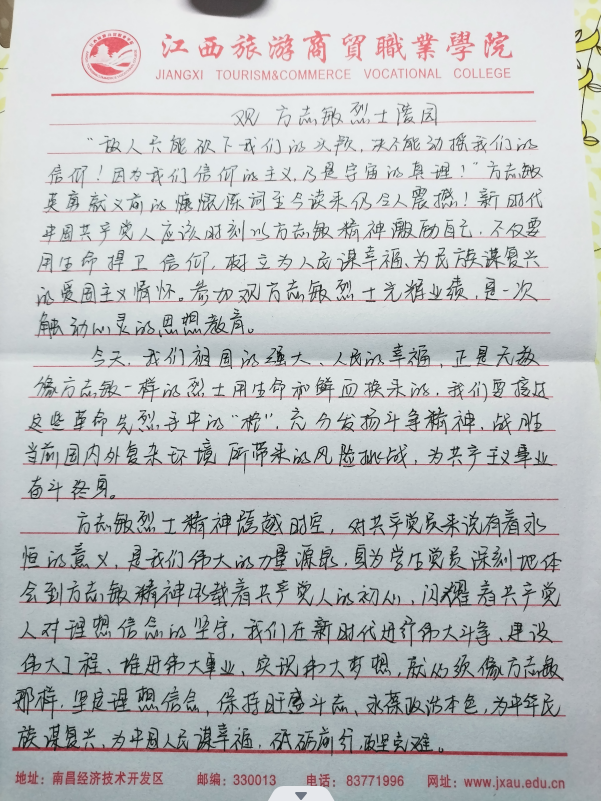 江西旅游商貿職業學院
JIANGXI TOURISM&COMMERCE VOCATIONAL COLLEGE
观 方志敏烈士陵园
“敌人只能砍下我们的头颅，决不能动摇我们的
信仰！因为我们信仰的主义，乃是宇宙的真理！”方志敏
英勇就义前的慷慨陈词至今读来仍令人震撼！新时代
中国共产党人应该时刻以方志敏精神激励自己，不仅要
用生命捍卫信仰，树立为人民谋幸福、为民族谋复兴
的爱国主义情怀。参加观方志敏烈士光辉业绩，是一次
触动心灵的思想教育。
今天，我们祖国的强大、人民的幸福，正是无数
像方志敏一样的烈士用生命和鲜血换来的，我们要接过
这些革命先烈手中的“枪”，充分发扬斗争精神，战胜
当前国内外复杂环境所带来的风险挑战，为共产主义事业
奋斗终身。
方志敏烈士精神跨越时空，对共产党员来说有着永
恒的意义，是我们伟大的力量源泉，身为学生党员深刻地体
会到方志敏精神承载着共产党人的初心，闪耀着共产党
人对理想信念的坚守，我们在新时代进行伟大斗争、建设
伟大工程、推进伟大事业、实现伟大梦想，就必须像方志敏
那样，坚定理想信念，保持旺盛斗志、永葆政治本色，为中华民
族谋复兴、为中国人民谋幸福，砥砺前行，攻坚克难。
地址：南昌经济技术开发区 邮编：330013 电话：83771996 网址：www.jxau.edu.cn